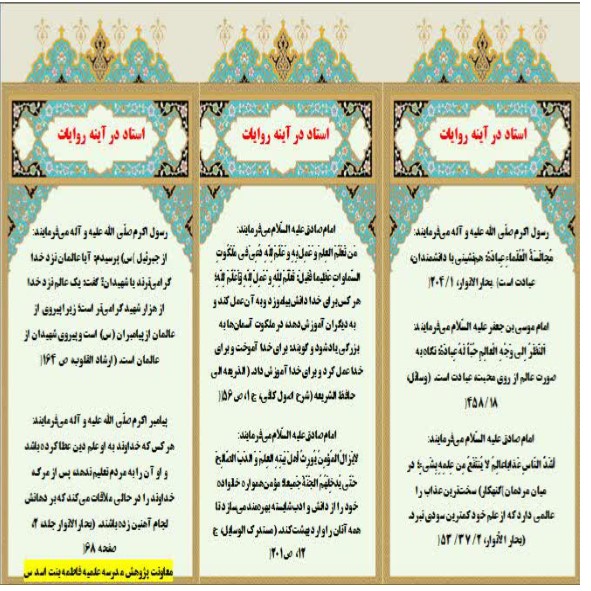 استاد در آینه روایات
رسول اکرم صلّی الله علیه و آله می‌فرمایند:
مُجالَسَةُ الْعُلَماءِ عِبادَةٌ؛ همنشینی با دانشمندان،
عبادت است) بحارالانوار، ۱/ ۲۰۴(
امام موسی بن جعفر علیه السلّام می‌فرمایند:
اَلنَّظَرُ اِلی وَجْهِ الْعالِمِ حُبّاً لَهُ عِبادَةٌ؛ نگاه به
صورت عالم از روی محبت، عبادت است. (وسائل،
۱۸/ ۴۵۸(
امام صادق علیه السلّام می‌فرمایند:
اَشَدُّ النّاسِ عَذاباً عالِمٌ لا یَنْتَفِعُ مِن عِلمِهِ بِشَیءٍ؛ در
میان مردمان)گنهکار( سخت‌ترین عذاب را
عالمی دارد که از علم خود کمترین سودی نبرد.
(بحار الأنوار، ۲/ ۳۷/ ۵۳(
استاد در آینه روایات
امام صادق علیه السلّام می‌فرمایند:
مَن تَعَلَّمَ العِلمَ و عَمِلَ بِهِ و عَلَّمَ لِلّهِ دُعِیَ فی مَلَکوتِ
السَّماواتِ عَظیما فَقیلَ: تَعَلَّمَ لِلّهِ و عَمِلَ لِلّهِ وَ عَلَّمَ لِلّهِ؛
هر کس برای خدا دانش بیاموزد و به آن عمل کند و
به دیگران آموزش دهد، در ملکوت آسمان‌ها به
بزرگی یاد شود و گویند: برای خدا آموخت و برای
خدا عمل کرد و برای خدا آموزش داد. ( الذریعه الی
حافظ الشریعه (شرح اصول کافی، ج ۱، ص ۵۶(
امام صادق علیه السلّام می‌فرمایند:
لایَزالُ المؤمِنُ یُورِثُ أهلَ بَیتِهِ العِلمَ وَ الأدَبَ الصّالِحَ
حَتّی یُدخِلَهُمُ الجَنَّةَ جَمیعا؛ مؤمن همواره خانواده
خود را از دانش و ادب شایسته بهره‌مند می‌سازد تا
همه آنان را وارد بهشت کند. (مستدرک الوسایل، ج
۱۲، ص۲۰۱(
استاد در آینه روایات
رسول اکرم صلّی الله علیه و آله می‌فرمایند:
از جبرئیل )س( پرسیدم: آیا عالمان نزد خدا
گرامی‌ترند یا شهیدان؟ گفت: یک عالم نزد خدا
از هزار شهید گرامی‌تر است؛ زیرا پیروی از
عالمان از پیامبران (س) است و پیروی شهیدان از
عالمان است. ( ارشاد القلوب، ص ۱۶۴(
پیامبر اکرم صلّی الله علیه و آله می‌فرمایند:
هر کس که خداوند به او علم دین عطا کرده باشد
و او آن را به مردم تعلیم ندهد، پس از مرگ،
خداوند را در حالی ملاقات می‌کند که بر دهانش
لجام آهنین زده باشند. (بحارالأنوار جلد ۲،
صفحه ۶۸(
معاونت پژوهش مدرسه علمیه فاطمه بنت اسد س